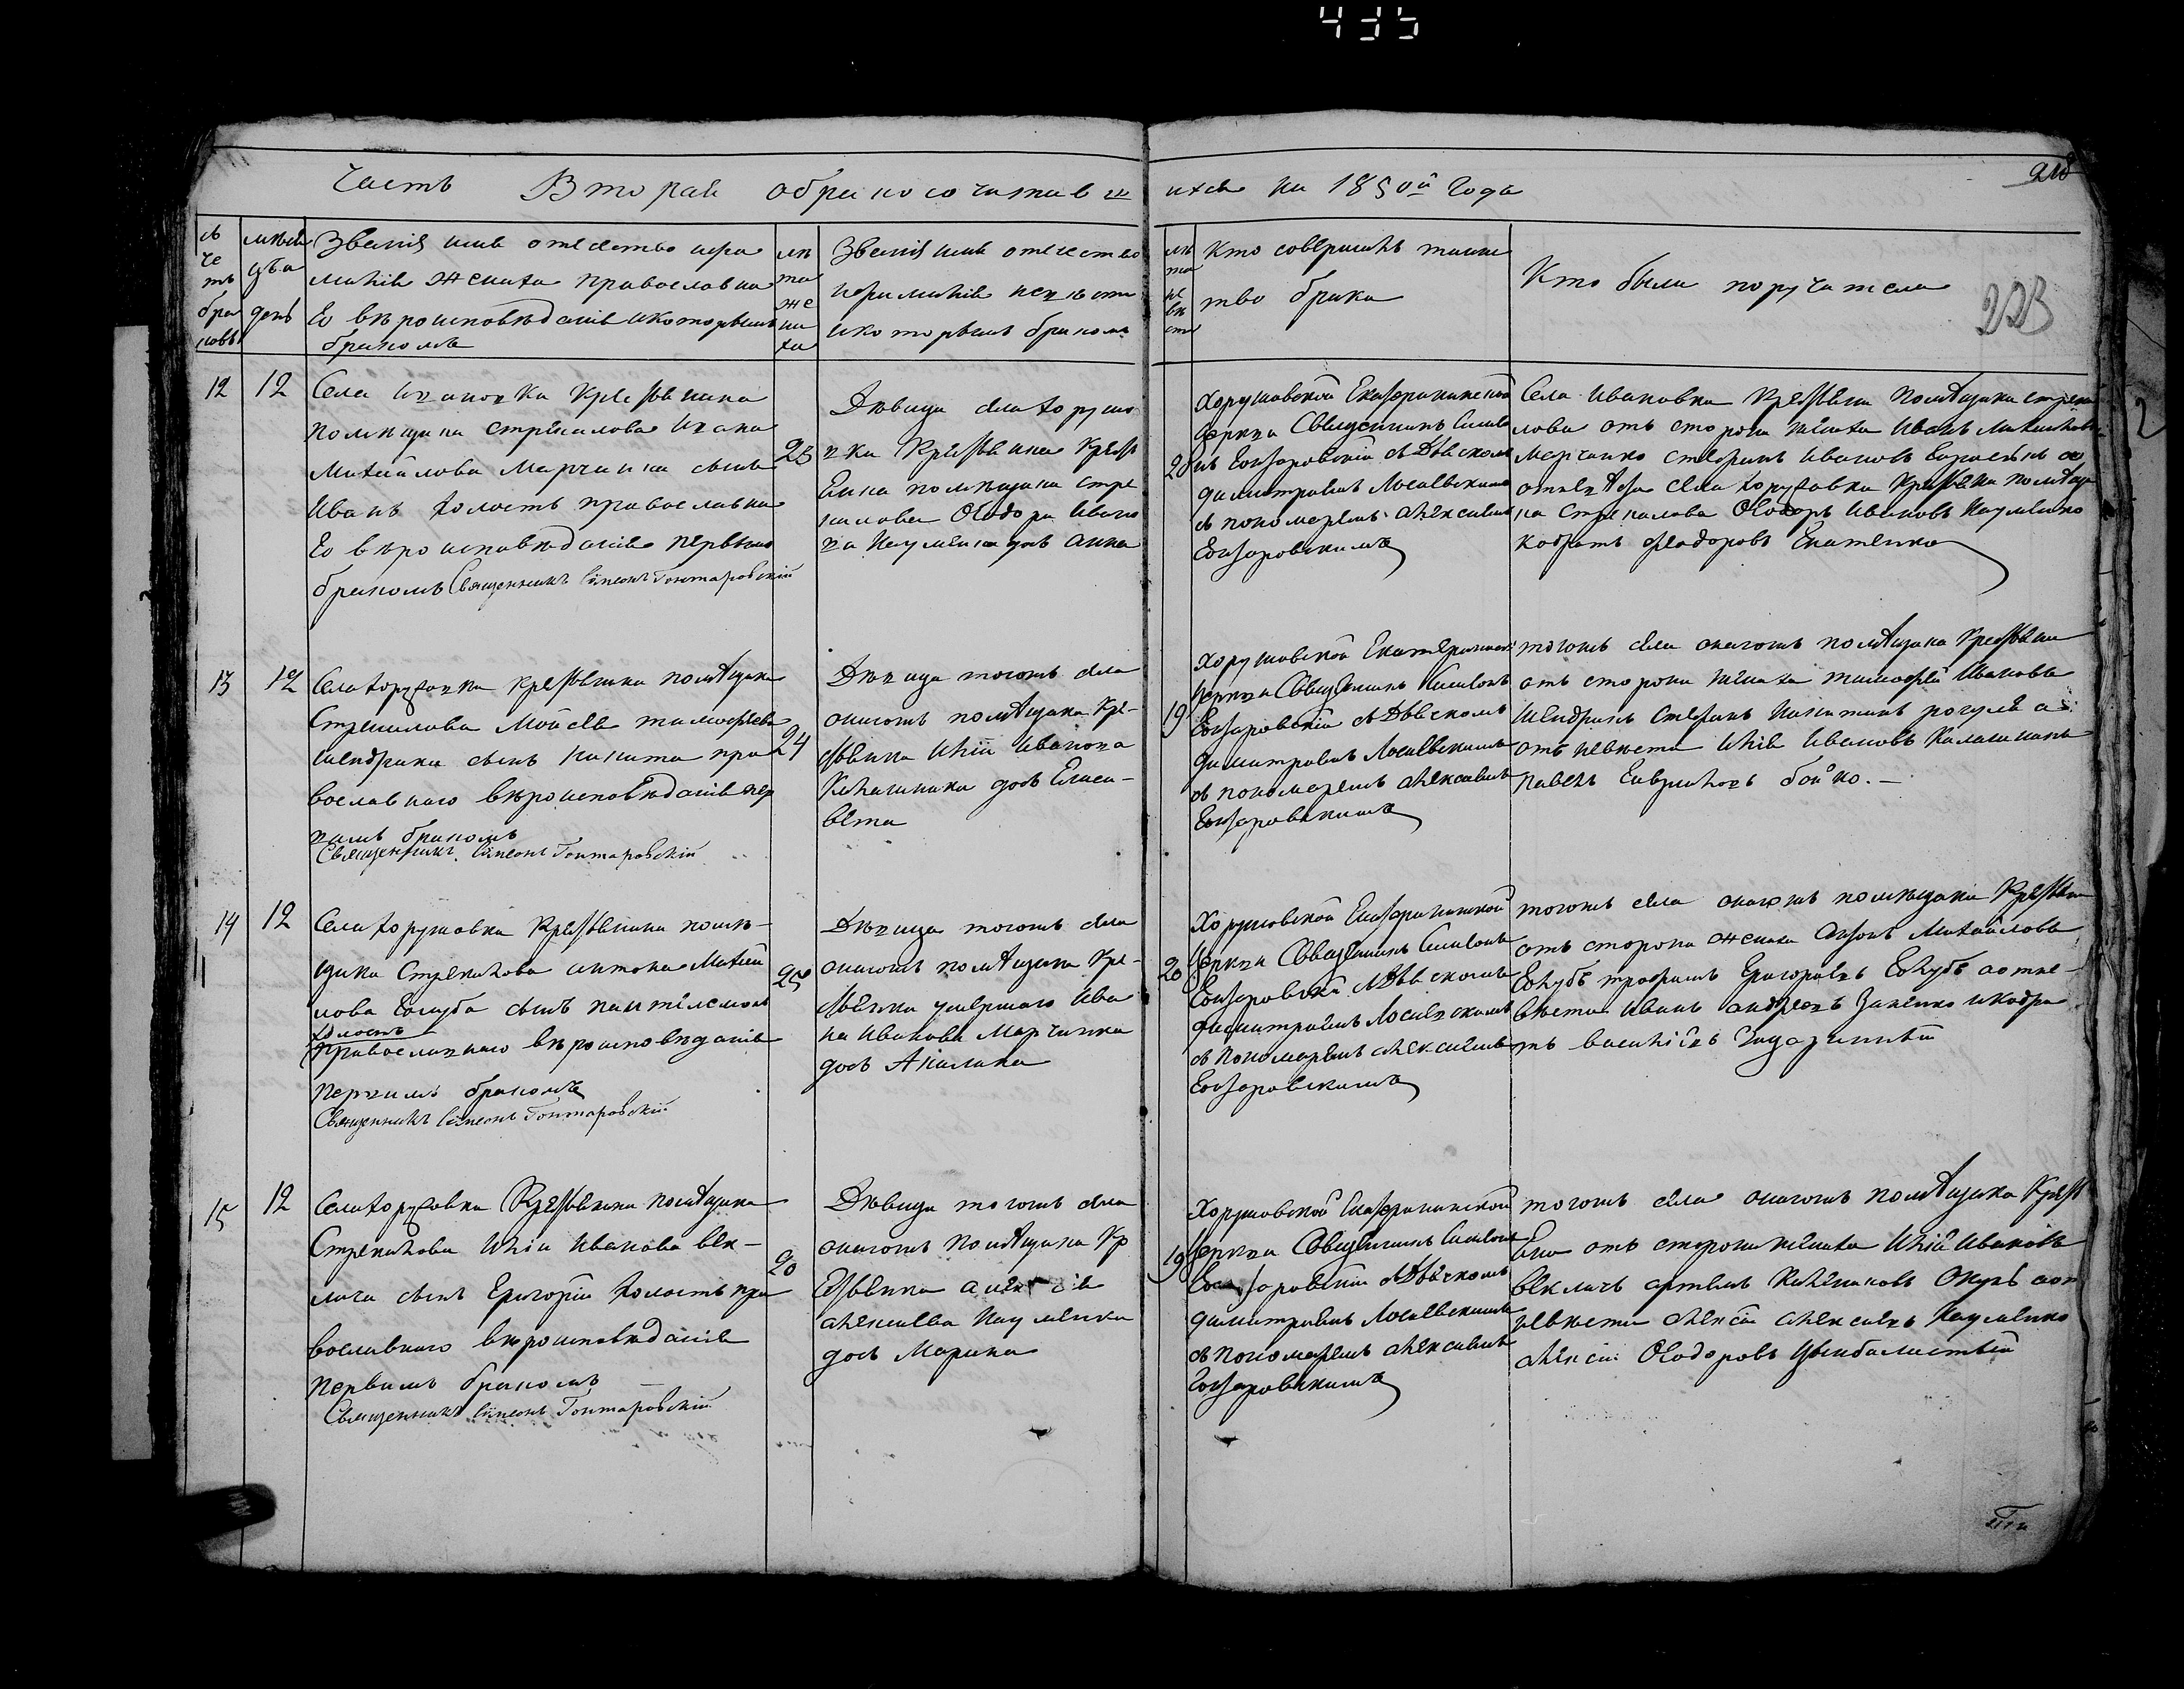 435
Часть Вторая о бракосочтавш ихся на 1850й года
218
223
сче
тъ
бра
ковъ
месе
ца
день
Звания имя отечество и фа
милия жениха православна
го вѣроисповѣдания и которымъ
бракомъ
лѣ
та
же
ни
ха
Звания имя отечество
и фамилия невѣсти
и которымъ бракомъ
лѣ
та
не
вѣ
сти
Кто совершилъ таинс
тво брака
Кто были поручатели
12
12
Села Ивановки Крестьянина
помѣщика Стрекалова Ивана
Михайлова Марченка сынъ
Иванъ холостъ православна
го вѣроисповѣдания первымъ
бракомъ Священникъ Сімеонъ Гонтаровскій
23
Дѣвица села Хоруш
вки Крестьянина
помѣщика Стре
калова Феодора Ивано
ва Науменка дочь Анна
20
Хорушовской Екатерининской
церкви Священникъ Симео
нъ Гонтаровский съ Дьячкомъ
Димитриемъ Лосиевскимъ
съ пономаремъ Алексиемъ
Гонтаровскимъ
Села Ивановки Крестьяни Помѣщика Стрека
лова отъ сторони жениха Иванъ Михайловъ
Марченко Стефанъ Ивановъ
отневѣсти села Хорушовки Крестьяни помѣщи
ка Стрекалова Феодоръ Ивановъ Науменко
Кодратъ Феодоровъ
13
12
Села Хорушовки крестьянина помѣщика
Стрекалова Мойсея Тимофеева
Шендрика сынъ Никита пра
вославнаго вѣроисповѣдания пер
вимъ бракомъ
Священникъ Сімеонъ Гонтаровскій
24
Дѣвица тогожъ села
онагожъ помѣщика Кре-
стьянина Илии Иванова
Калашника дочь Елиса-
вета
19
Хорушовской Екатерининской
церкви Священникъ Симеонъ
Гонтаровский съ Дьячкомъ
Димитриемъ Лосиевскимъ
съ пономаремъ Алексиемъ
Гонтаровскимъ
тогожъ села онагожъ помѣщика Крестьяни
отъ сторони жениха Тимофей Ивановъ
Шендрикъ Стефанъ Никитинъ Рогуля а
отъ невѣсти Илия Ивановъ Калашникъ
Павелъ Гавриловъ Бойко.—
14
12
Села Хорушовки Крестьянина помѣ-
щика Стрекалова Антона Михай
лова Голуба сынъ Пантелемонъ
холостъ
православнаго вѣроисповѣдания
первимъ бракомъ
Священникъ Сімеонъ Гонтаровскій
25
Дѣвица тогожъ села
онагожъ помѣщика Кре-
стьянина умершаго Ива
на Иванова Марченка
дочь Акилина
20
Хорушовской Екатерининской
церкви Священникъ Симеонъ
Гонтаровский съ Дьячкомъ
Димитриемъ Лосиевскимъ
съ Пономаремъ Алексиемъ
Гонтаровскимъ
тогожъ села онагожъ помѣщика Крестьяни
отъ сторони жениха Антонъ Михайловъ
Голубъ Трофимъ Григориевъ Голубъ а отне-
вѣсти Иванъ Андреевъ и Кодра
тъ Василиевъ
15
12
Села Хорушовки Крестьянина помѣщика
Стрекалова Илии Иванова Век-
лича сынъ Григорий холостъ пра
вославнаго вѣроисповѣдания
первимъ бракомъ —
Священникъ Сімеонъ Гонтаровскій
20
Дѣвица тогожъ села
онагожъ помѣщика Кр
естьянина Алексия
Алексиева Науменка
дочь Марина
19
Хорушовской Екатерининской
церкви Священникъ Симеонъ
Гонтаровский съ Дьячкомъ
Димитриемъ Лосиевскимъ
съ пономаремъ Алексиемъ
Гонтаровскимъ
тогожъ села онагожъ помѣщика Крест
яни отъ сторони жениха Илия Ивановъ
Векличъ Артемъ а от
невѣсти Алексий Алексиевъ Науменко
Алексий Феодоровъ